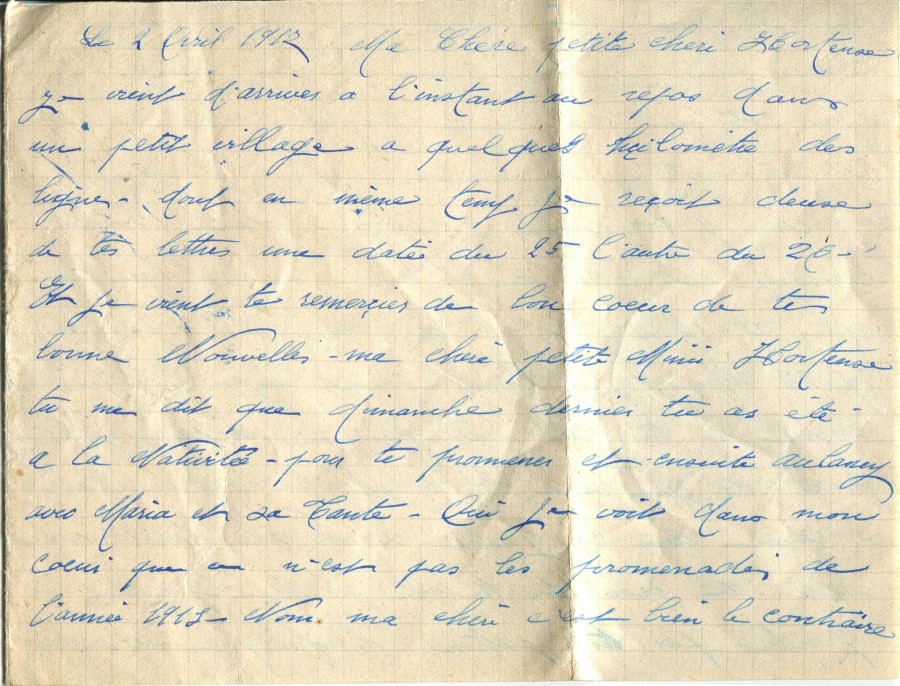 Le 2 Avril 1917 Ma Chere petite cheri Hortense
je vient d'arriver a l'instant au repos dans
un petit village a quelques kilométre des
ligne - dout en même temp je reçoit deuse
de tes lettres une datée du 25 l'autre du 26 -
Et je vient te remerçier de bon coeur de tes
bonne Nouvelles - ma cheré petite Mimi Hortense
tu me dit que dimanche dernier tu as été
a la Nativitée - pour te promener et ensuite
avec Maria et sa Tante - Oui je voit dans mon
coeur que ce n'est pas les promenades de
l'année 1913 - Non ma chéri c'est bien le contraire